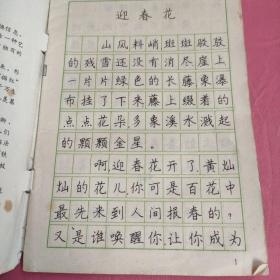 迎春花
山风料峭，斑斑驳驳
的残雪还没有消尽，崖上
一片片绿色的长藤象瀑
布挂了下来，长藤上缀着的
点点花朵，多象溪水溅起
的颗颗金星。
啊，迎春花开了，黄灿
灿的花儿，你可是百花中
最先来到人间报春的？
又是谁唤醒你，让你成为
1